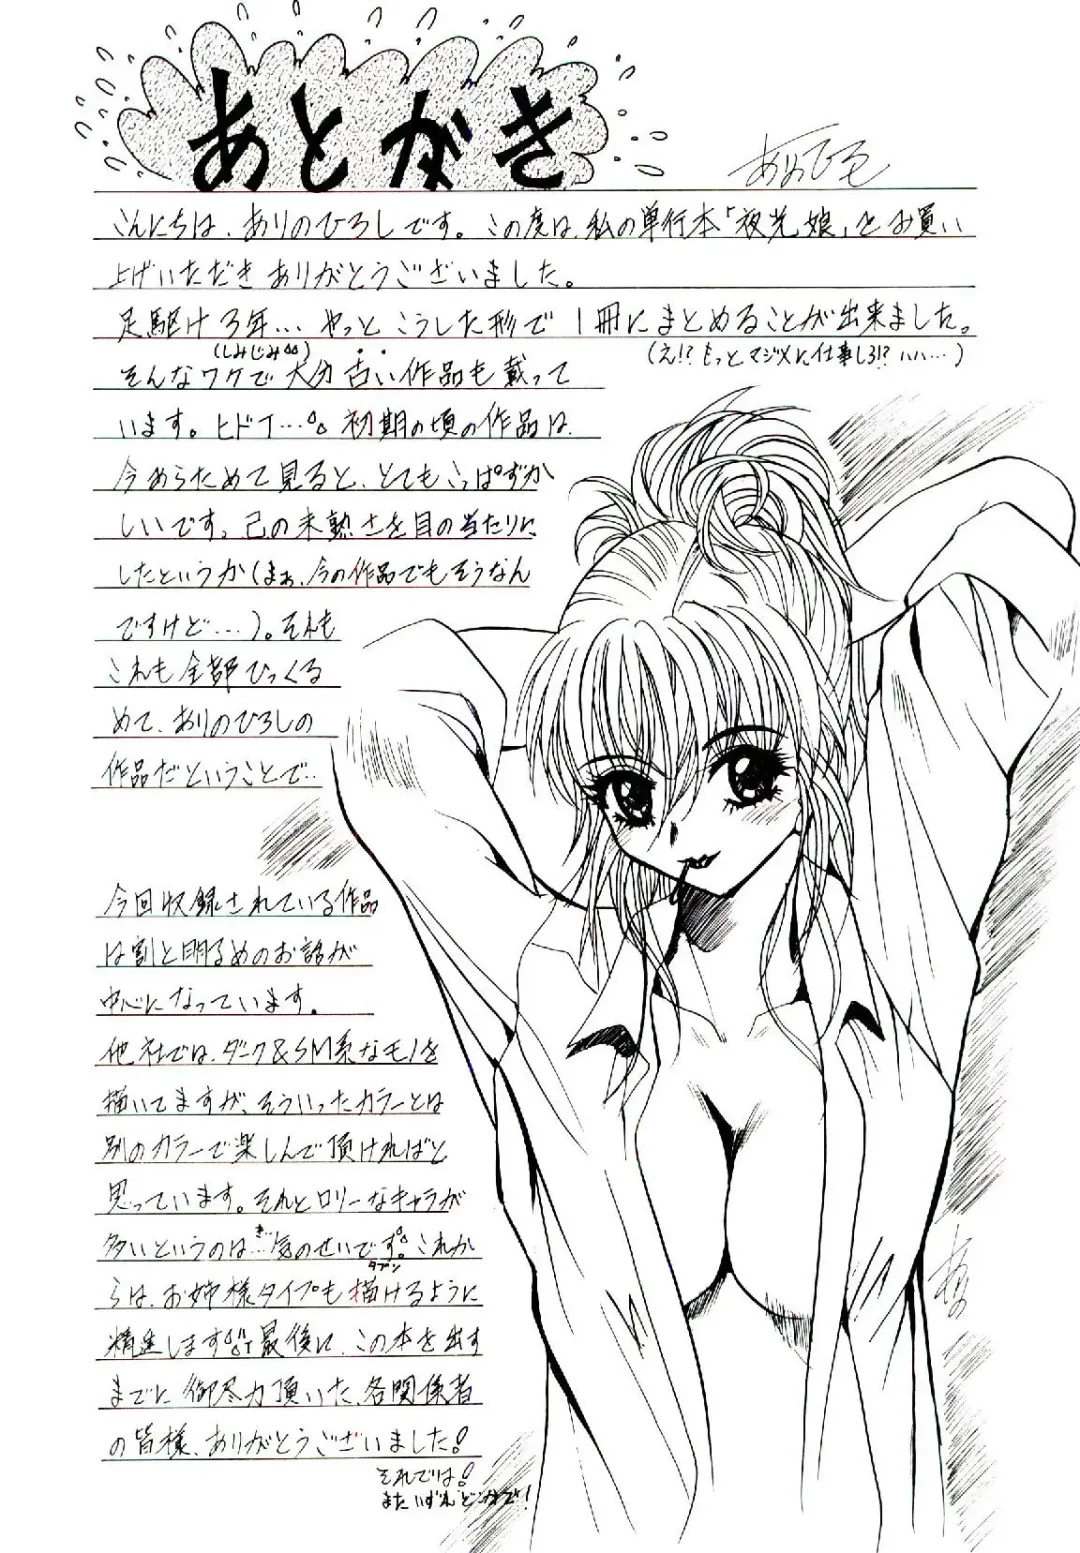 あとがき
ありのひろし
こんにちは、ありのひろしです。この度は、私の単行本「夜光娘」をお買い
上げいただきありがとうございました。
足駆け3年…やっとこうした形で1冊にまとめることが出来ました。
(しみじみ)
(え!?もっとマジメに仕事しろ!?ハハ…)
そんなワケで大分古い作品も載って
います。ヒドイ…初期の頃の作品は、
今あらためて見ると、とてもこっぱずか
しいです。己の未熟さを目の当たりに
したというか(まぁ、今の作品でもそうなん
ですけど…)。それも
これも全部ひっくる
めて、ありのひろしの
作品だということで…
今回収録されている作品
は割と明るめのお話が
中心になっています。
他社では、ダーク&SM系なモノを
描いてますが、そういったカラーとは
別のカラーで楽しんで頂ければと
思っています。それとロリーなキャラが
多いというのは…気のせいです。これか
き…
タブン
らは、お姉様タイプも描けるように
精進します。最後に、この本を出す
までに御尽力頂いた、各関係者
の皆様、ありがとうございました!
それでは!
またいずれどこかで!